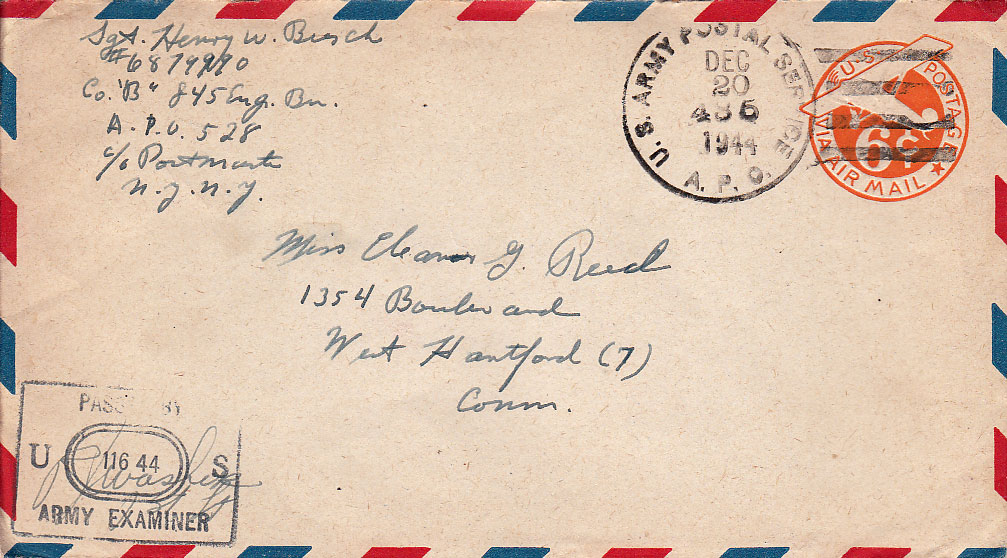 Sgt. Henry W. Busch
#6879990
Co. "B" 845 Eng. Bn.
A.P.O. 528
c/o Postmaster
N.Y. N.Y.
U.S. ARMY POSTAL SERVICE
DEC
20
1944
A. P. O.
U S POSTAGE
6¢
VIA AIR MAIL
Miss Eleanor G. Reed
1354 Boulevard
West Hartford (7)
Conn.
PASS BY
U 11644 S
ARMY EXAMINER